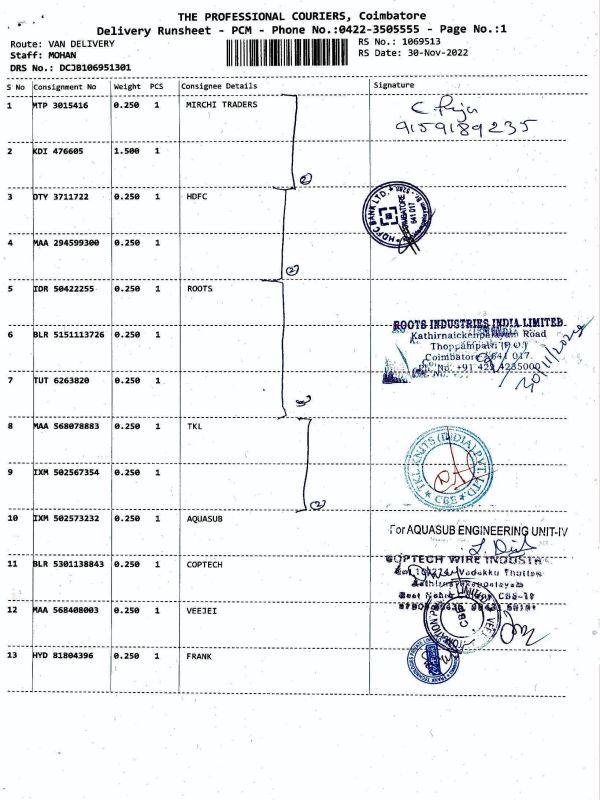 THE PROFESSIONAL COURIERS, Coimbatore
Delivery Runsheet - PCM - Phone No.:0422-3505555 - Page No.:1
Route: VAN DELIVERY RS No.: 1069513
Staff: MOHAN RS Date: 30-Nov-2022
DRS No.: DCJB106951301
S No Consignment No Weight PCS Consignee Details Signature
1 MTP 3015416 0.250 1 MIRCHI TRADERS C. Raja
9159189235
2 KDI 476605 1.500 1
2
3 DTY 3711722 0.250 1 HDFC
HDFC BANK LTD. COIMBATORE 641 017
4 MAA 294599300 0.250 1
2
5 IDR 50422255 0.250 1 ROOTS
ROOTS INDUSTRIES INDIA LIMITED
6 BLR 5151113726 0.250 1 Kathirnaickenpalayam Road
Thoppampatti (P.O.)
Coimbatore 641 017.
Ph. No. +91 422 4235000
30/11/2022
7 TUT 6263820 0.250 1
8 MAA 568078883 0.250 1 TKL
TKL KNITS (INDIA) PVT. LTD. CBE
9 IXM 502567354 0.250 1
2
10 IXM 502573232 0.250 1 AQUASUB For AQUASUB ENGINEERING UNIT-IV
11 BLR 5301138843 0.250 1 COPTECH COPTECH WIRE INDUSTR
Vadakku Thottam
12 MAA 568408003 0.250 1 VEEJEI
13 HYD 81804396 0.250 1 FRANK